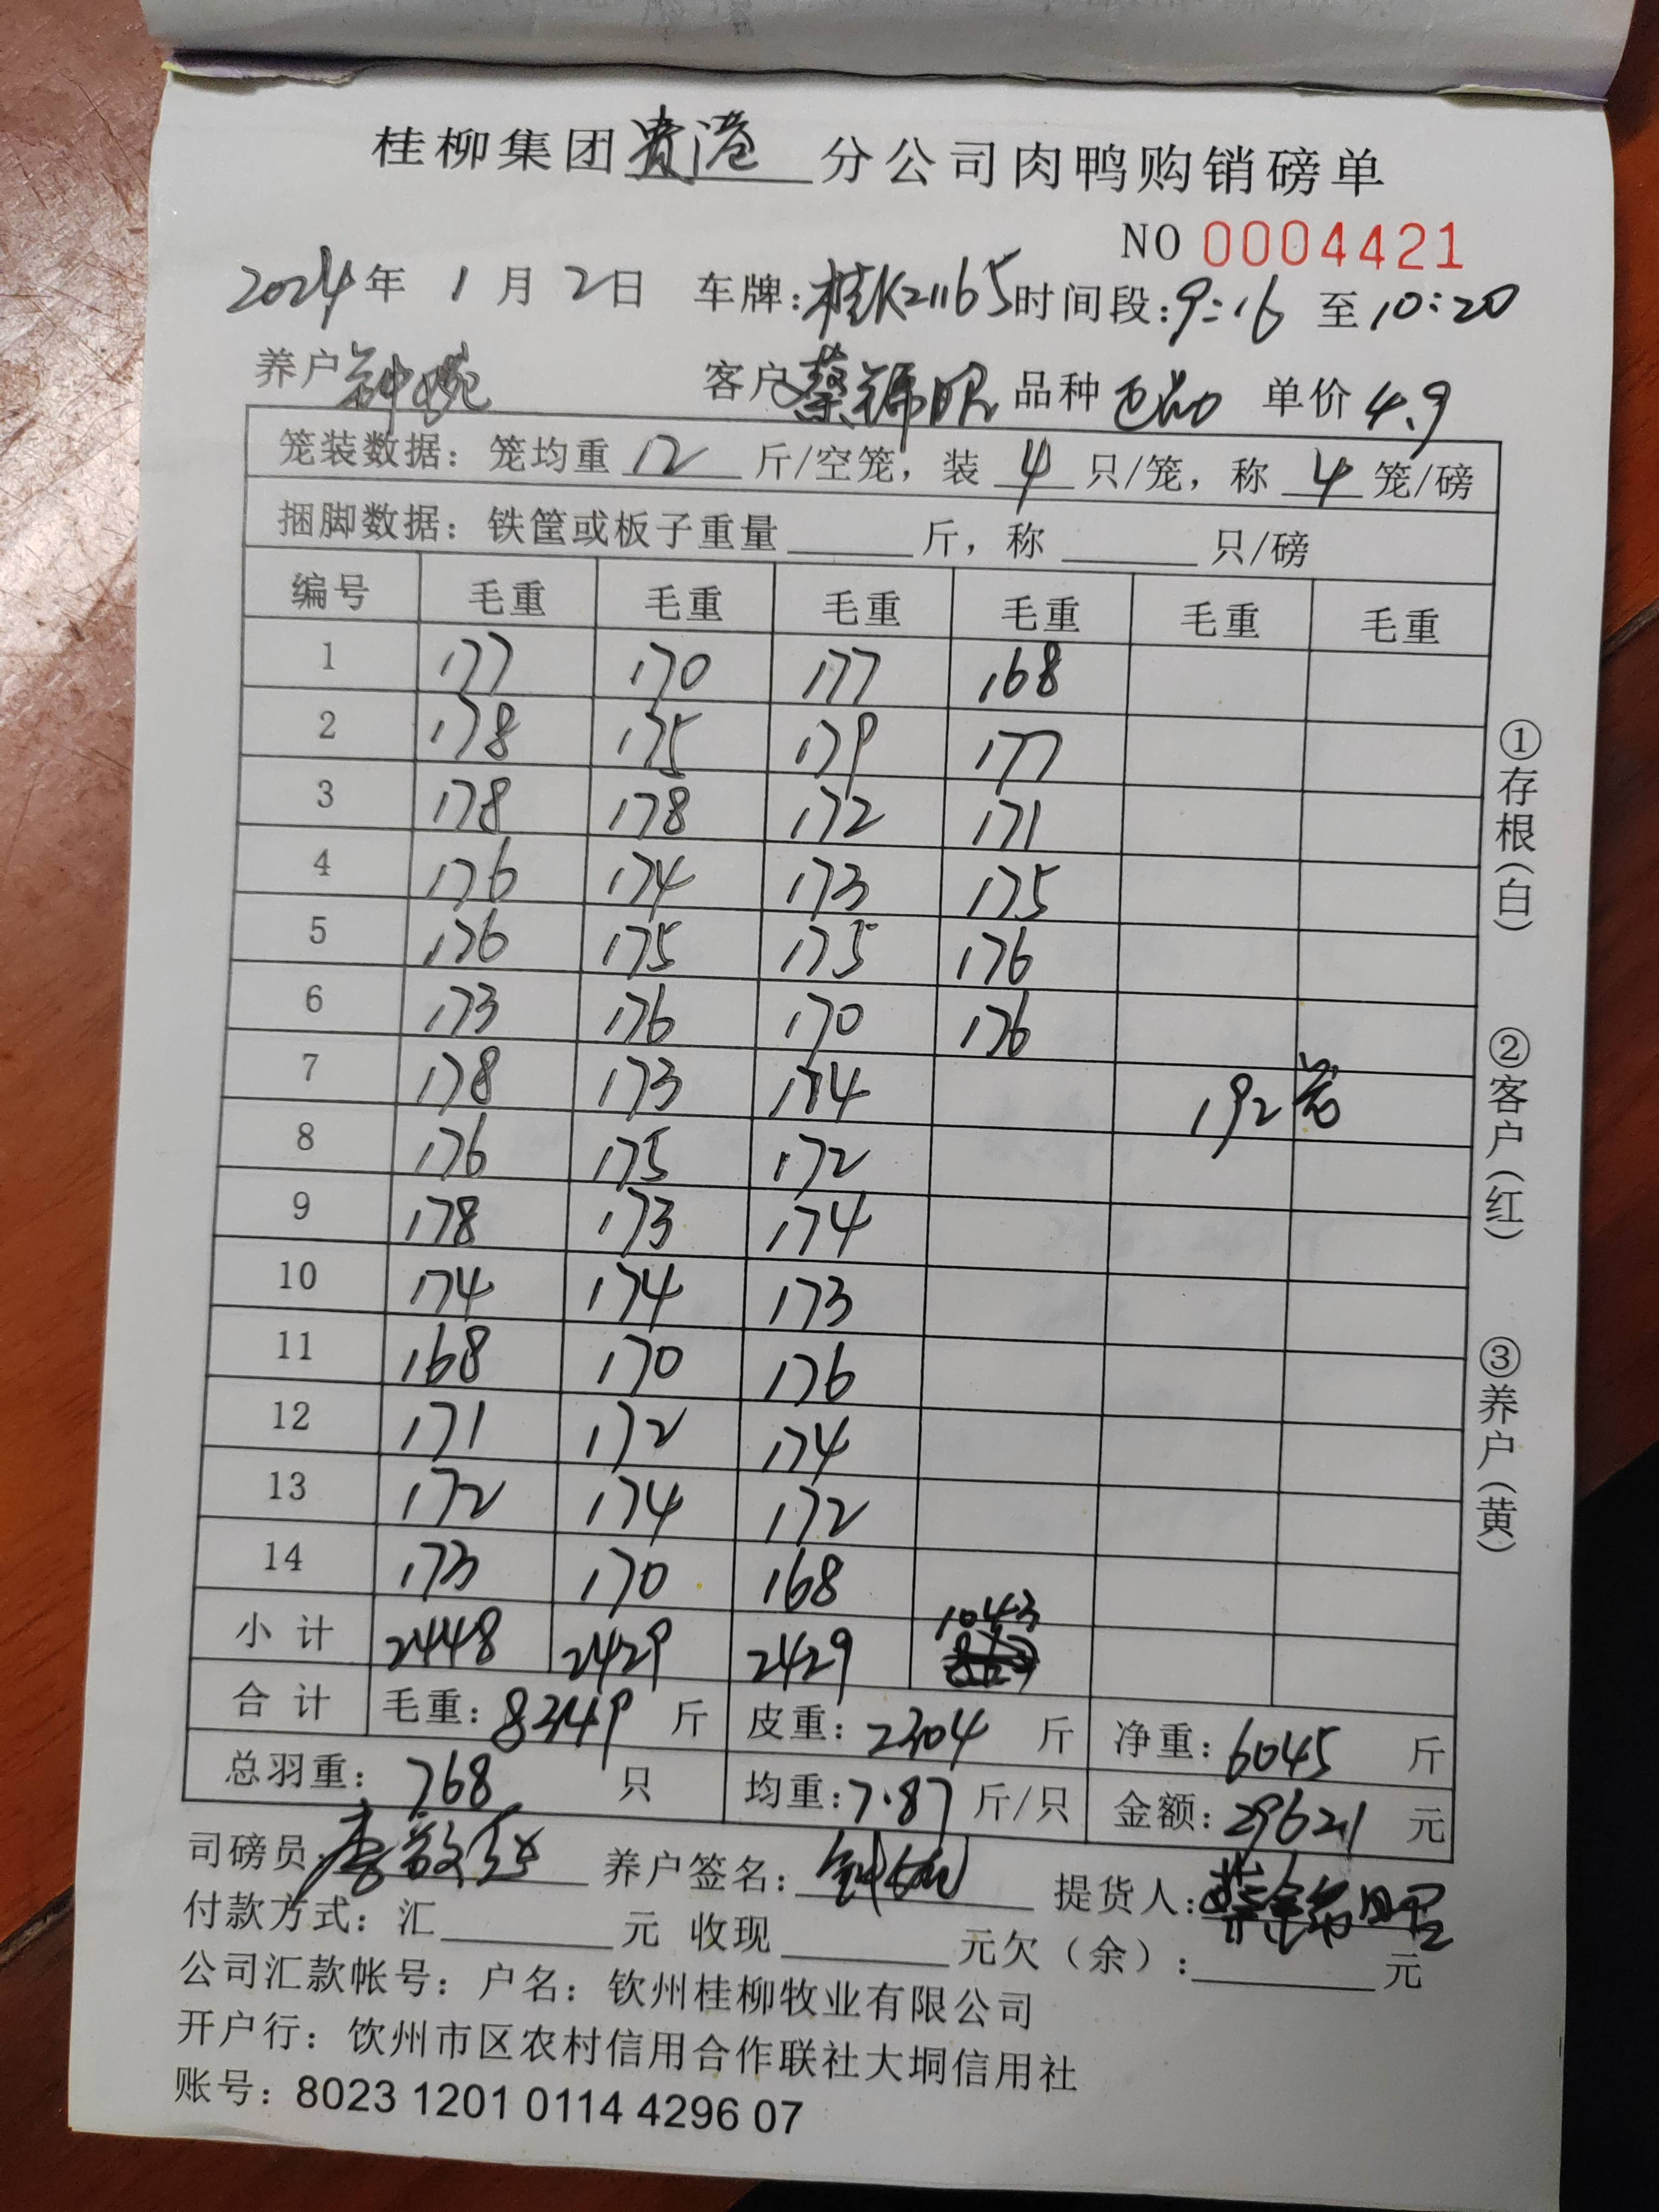 桂柳集团贵港分公司肉鸭购销磅单
NO 0004421
2024年 1月 2日 车牌:桂K21165 时间段:9:16 至 10:20
养户 钟婉 客户 蔡锦昭 品种 单价 4.9
笼装数据: 笼均重 12 斤/空笼, 装 4 只/笼, 称 4 笼/磅
捆脚数据: 铁筐或板子重量 斤, 称 只/磅
编号 毛重 毛重 毛重 毛重 毛重 毛重
1 177 170 177 168
2 178 175 179 177
3 178 178 172 171
4 176 174 173 175
5 176 175 175 176
6 173 176 170 176
7 178 173 174 192笼
8 176 175 172
9 178 173 174
10 174 174 173
11 168 170 176
12 171 172 174
13 172 174 172
14 173 170 168
小计 2448 2429 2429 1043
合计 毛重: 8349 斤 皮重: 2304 斤 净重: 6045 斤
总羽重: 768 只 均重: 7.87 斤/只 金额: 29621 元
司磅员: 养户签名: 钟婉 提货人: 蔡锦昭
付款方式: 汇 元 收现 元欠(余): 元
公司汇款帐号: 户名: 钦州桂柳牧业有限公司
开户行: 饮州市区农村信用合作联社大垌信用社
账号: 8023 1201 0114 4296 07
①存根(白) ②客户(红) ③养户(黄)